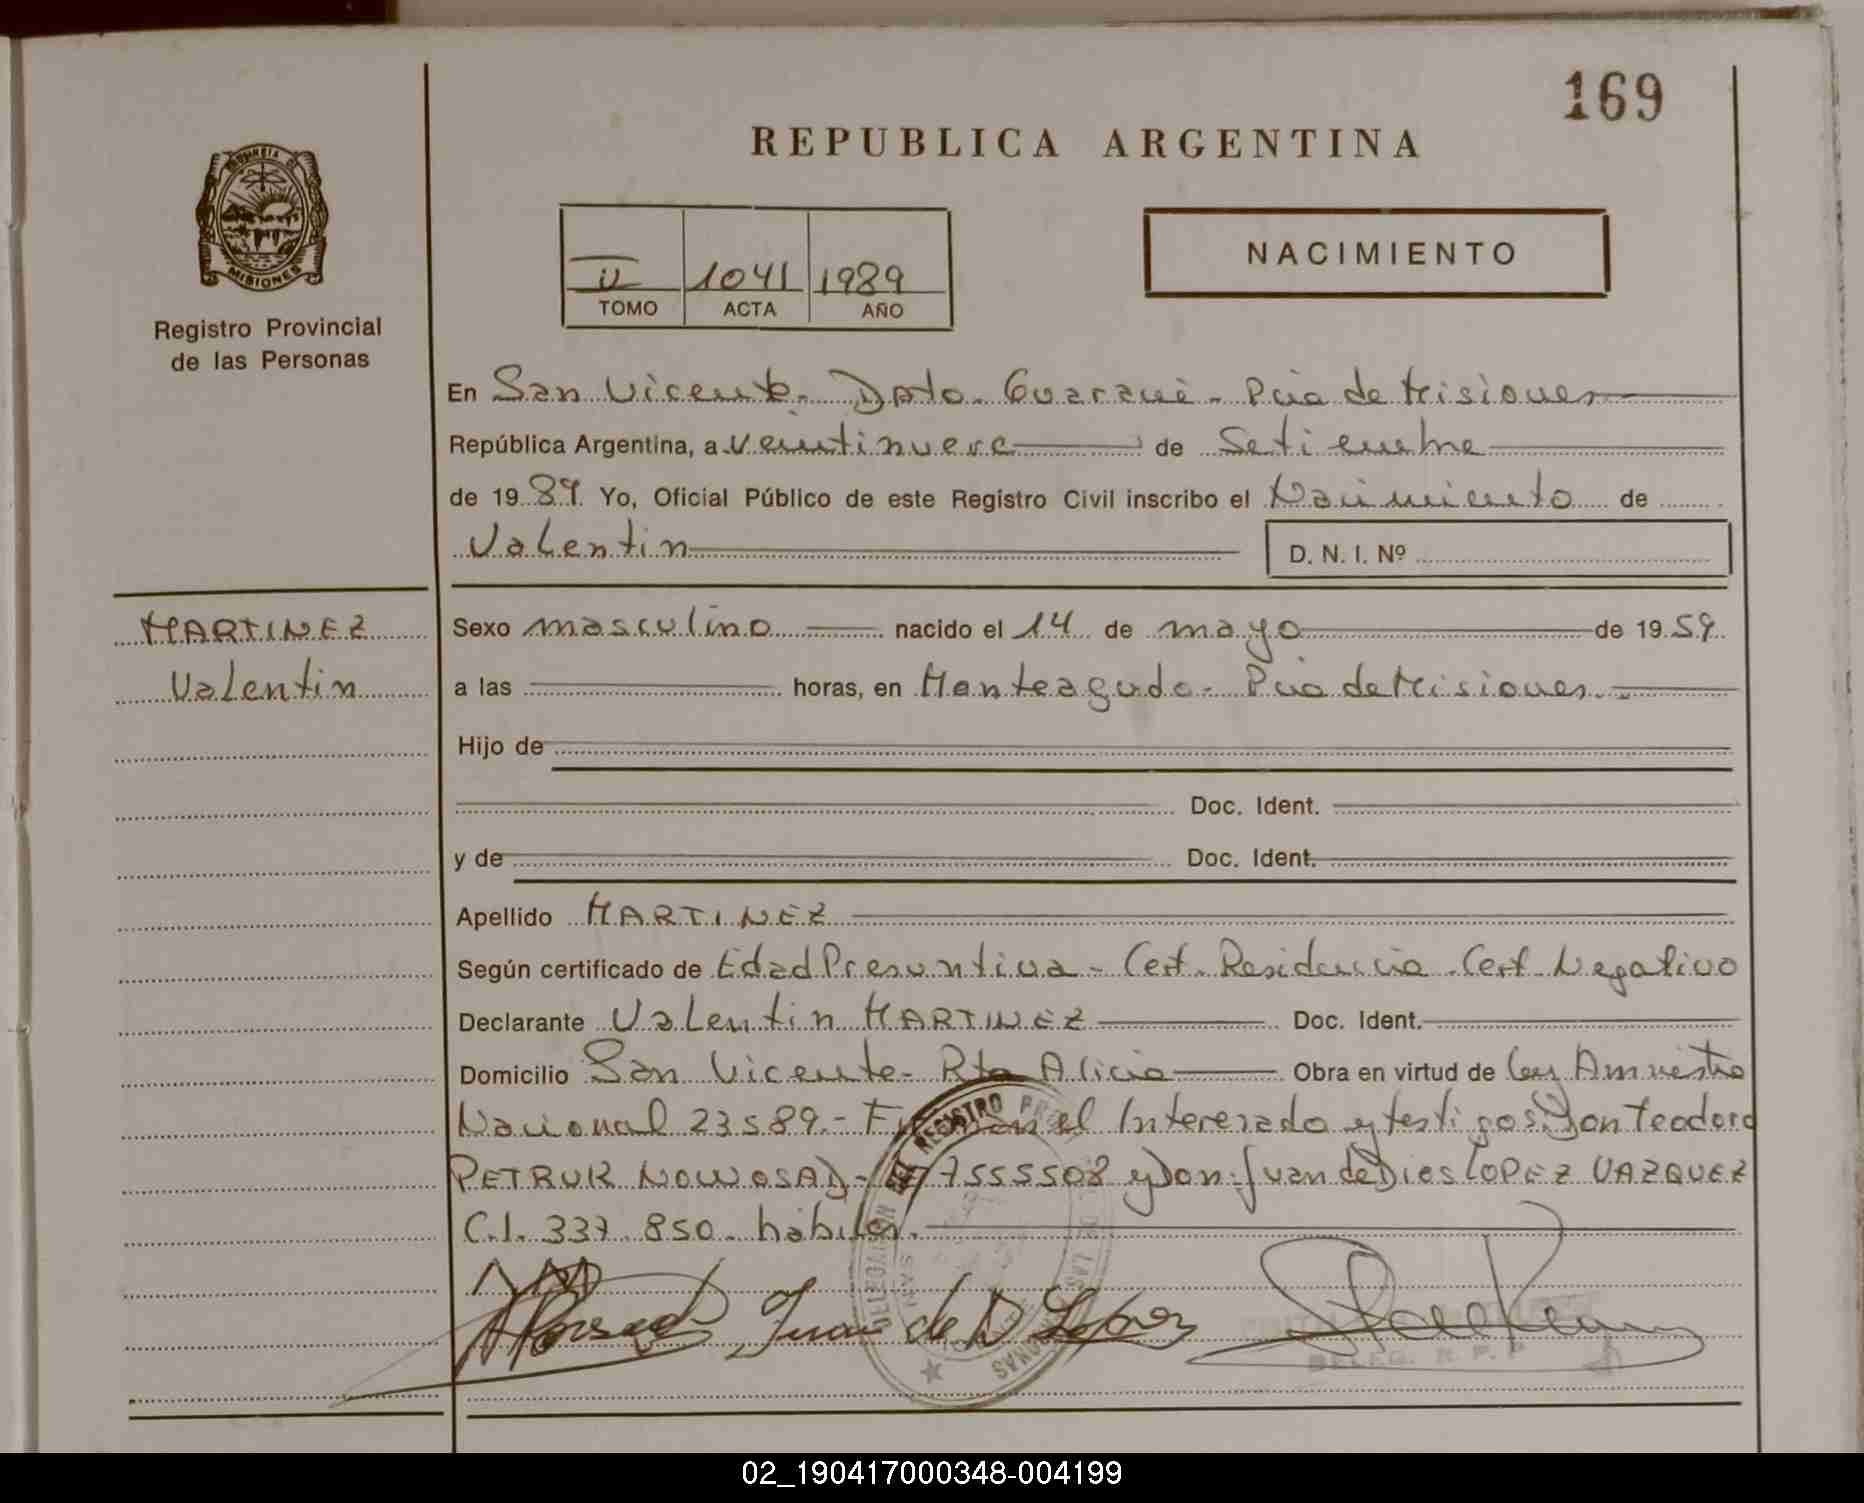 169
REPUBLICA ARGENTINA
PROVINCIA DE
MISIONES
Registro Provincial
de las Personas
II 1041 1989
TOMO ACTA AÑO
NACIMIENTO
En San Vicente. Dpto. Guaraní. Pcia de Misiones
República Argentina, a veintinueve de Setiembre
de 1989. Yo, Oficial Público de este Registro Civil inscribo el Nacimiento de
Valentin D. N. I. Nº
MARTINEZ
Valentin
Sexo masculino nacido el 14 de mayo de 1959
a las horas, en Monteagudo. Pcia de Misiones.
Hijo de
Doc. Ident.
y de Doc. Ident.
Apellido MARTINEZ
Según certificado de Edad Presuntiva - Cert. Residencia. Cert. Negativo
Declarante Valentin MARTINEZ Doc. Ident.
Domicilio San Vicente. Rta Alicia Obra en virtud de Ley Amnistia
Nacional 23589.- Firman el Interesado y testigos: Don Teodoro
PETRUK NOWOSAD - 7555508 y Don Juan de Dios LOPEZ VAZQUEZ
C.I. 337.850. hábiles.
Juan de D Lopez
DELEGACION DEL REGISTRO
DE LAS PERSONAS
DELEG. R. P. P
02_190417000348-004199